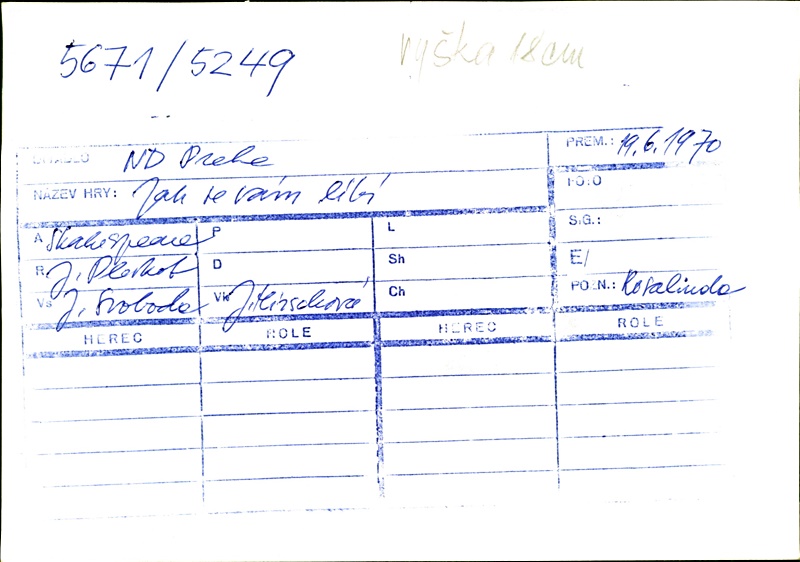 5671/5249
výška 18cm
DIVADLO ND Praha
PREM.: 19.6.1970
NÁZEV HRY: Jak se vám líbí
FOTO
A Shakespeare P L
S.G.:
R J. Pleskot D Sh
E/
Vs J. Svoboda Vk J. Hirschová Ch
POZN.: Rosalinda
HEREC ROLE HEREC ROLE